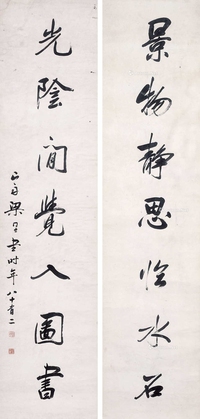 景物静思怜水石
光陰閒覺入圖書
山舟梁同書時年八十有二